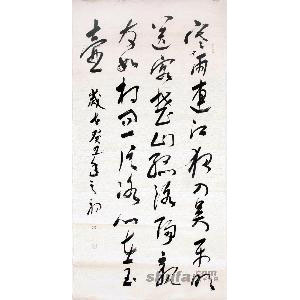 寒雨連江夜入吳平明
送客楚山孤洛陽親
友如相問一片冰心在玉
壺
歲在癸丑年之初